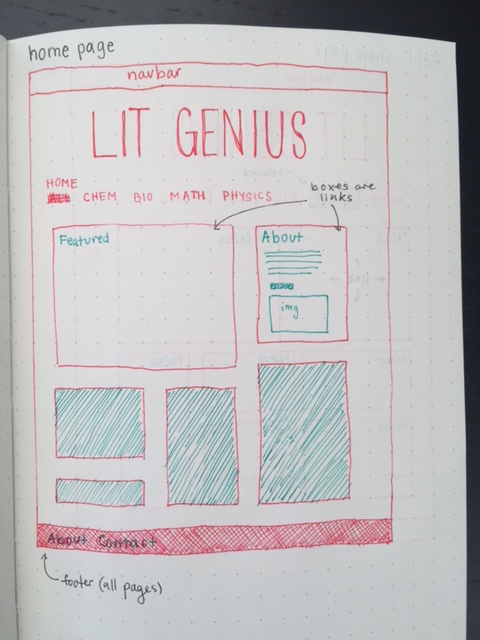 home page
navbar
LIT GENIUS
HOME
CHEM BIO MATH PHYSICS
boxes are
links
Featured
About
img
About Contact
footer (all pages)